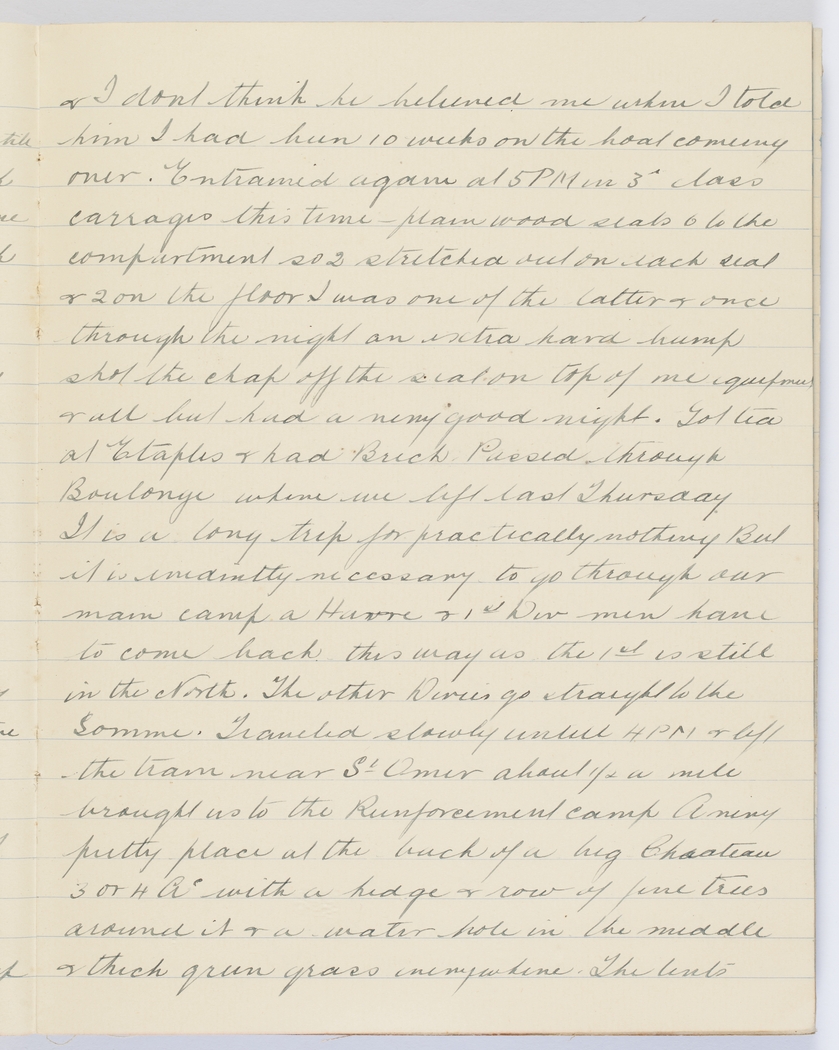 & I dont think he believed me when I told
him I had been 10 weeks on the boat comeing
over. Entrained again at 5PM in 3rd class
carrages this time - plain wood seats 6 to the
compartment so 2 stretched out on each seat
& 2 on the floor I was one of the latter & once
through the night an extra hard bump
shot the chap off the seat on top of me equipment
& all but had a very good night. Got tea
at Etaples & had Breck Passed through
Boulonge where we left last Thursday
It is a long trip for practically nothing But
it is evedintly necessary to go through our
main camp a Havre & 1st Div men have
to come back this way as the 1st is still
in the North. The other Divies go straight to the
Somme. Traveled slowly untill 4PM & left
the train near St Omer about 1/2 a mile
brought us to the Reinforcement camp A very
pretty place at the back of a big Chaateau
3 or 4 Ac with a hedge & row of fine trees
around it & a water hole in the middle
& thick green grass everywhere. The tents